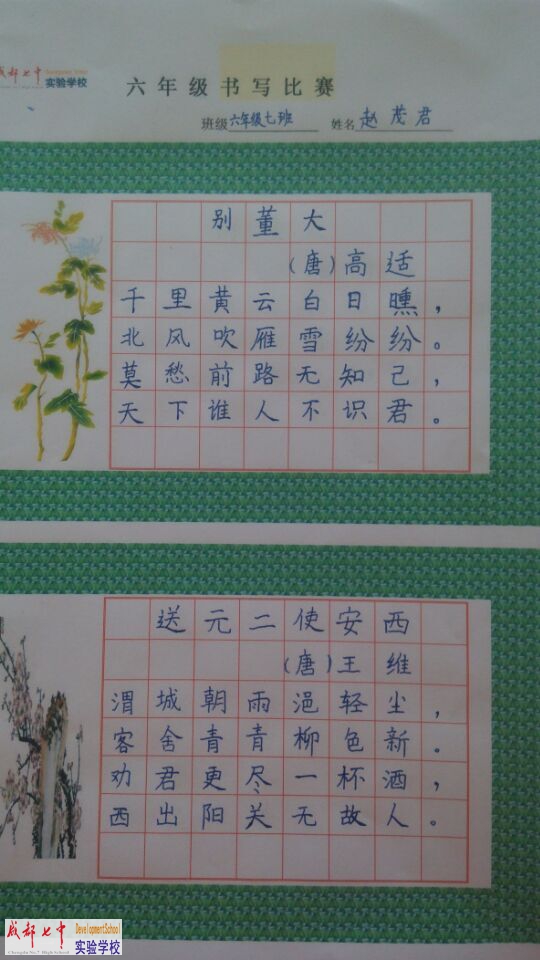 成都七中 Development School
实验学校
六年级书写比赛
班级 六年级七班 姓名 赵茂君
别董大
(唐)高适
千里黄云白日曛，
北风吹雁雪纷纷。
莫愁前路无知己，
天下谁人不识君。
送元二使安西
(唐)王维
渭城朝雨浥轻尘，
客舍青青柳色新。
劝君更尽一杯酒，
西出阳关无故人。
成都七中 DevelopmentSchool
Chengdu No.7 High School 实验学校